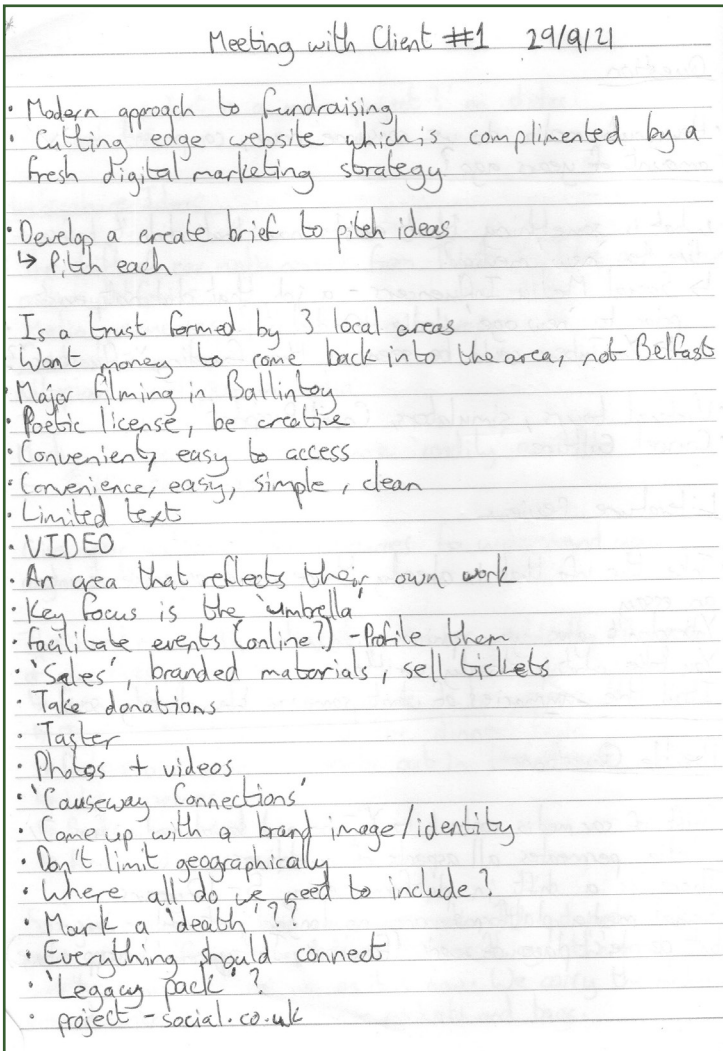 Meeting with Client #1 29/9/21
• Modern approach to fundraising
• Cutting edge website which is complimented by a
fresh digital marketing strategy
• Develop a create brief to pitch ideas
↳ Pitch each
Is a trust formed by 3 local areas
Want money to come back into the area, not Belfast
• Major filming in Ballintoy
• Poetic license, be creative
• Convenient, easy to access
• Convenience, easy, simple, clean
• Limited text
• VIDEO
• An area that reflects their own work
• Key focus is the 'umbrella'
• Facilitate events (online?) - Profile them
• 'Sales', branded materials, sell tickets
• Take donations
• Taster
• Photos + videos
• 'Causeway Connections'
• Come up with a brand image/identity
• Don't limit geographically
• Where all do we need to include?
• Mark a 'death'??
• Everything should connect
• 'Legacy pack'?
• project-social.co.uk